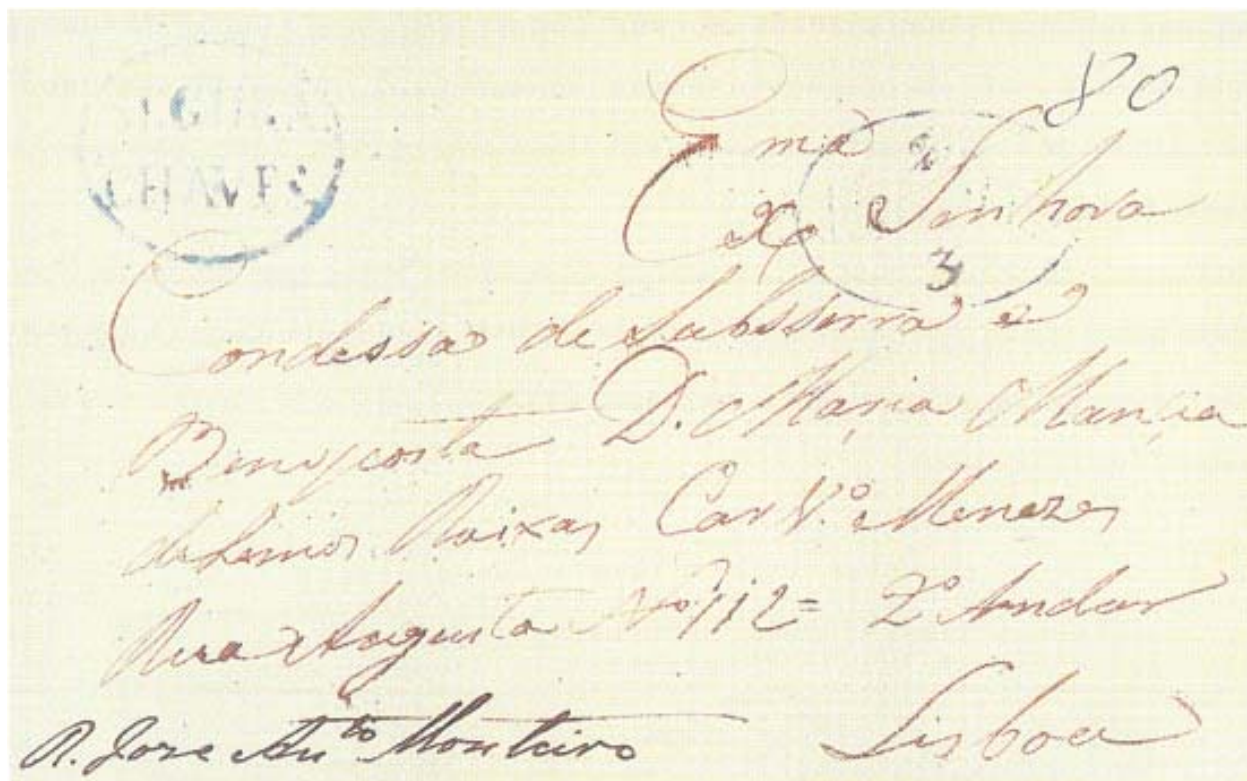 SEGURA
CHAVES
80
Exma
Sinhora
3
Condessa de Subsserra e
Bemposta D. Maria Mancia
de Lemos Roixas Carv.º Menezes
Rua Augusta Nº 112= 2º Andar
Lisboa
R. Jose Anto Monteiro